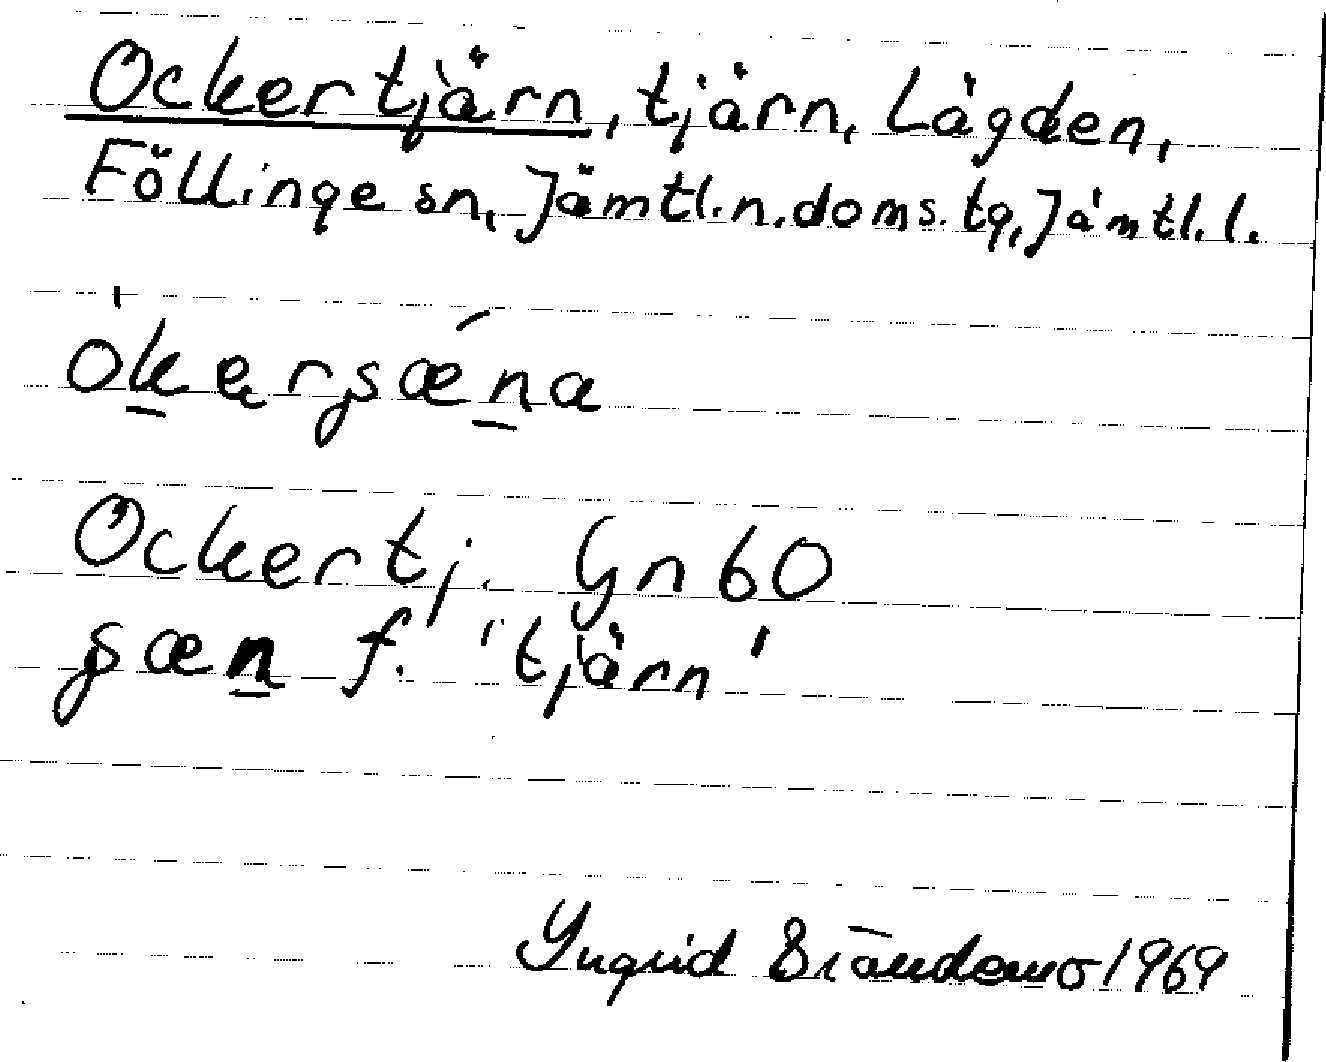 Ockertjärn, tjärn, Lågden,
Föllinge sn, Jämtl. n. doms. tg, Jämtl. l.
Ockertj. Gn 60
f. 'tjärn'
Ingrid Brändemo 1969